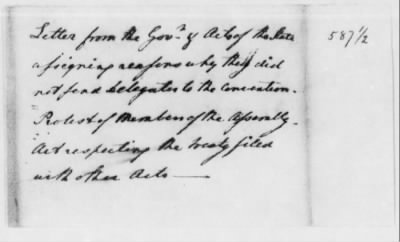 Letter from the Govr. & Acts of the State
assigning reasons why they did
not send Delegates to the Convention.
Protest of Members of the Assembly.
Act respecting the treaty filed
with other Acts
587 1/2